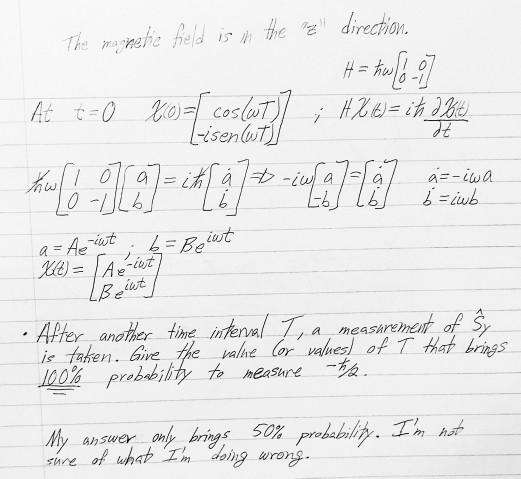 The magnetic field is in the "z" direction.
H = ħω[1 0 0 -1]
At t=0 χ(0)=[cos(ωT) -isen(ωT)] ; Hχ(t)= iħ ∂χ(t)/∂t
ħω[1 0 0 -1][a b] = iħ[ȧ ḃ] => -iω[a -b]=[ȧ ḃ] ȧ=-iωa ḃ=iωb
a = Ae^-iωt ; b = Be^iωt
χ(t) = [Ae^-iωt Be^iωt]
• After another time interval T, a measurement of Ŝy
is taken. Give the value (or values) of T that brings
100% probability to measure -ħ/2.
My answer only brings 50% probability. I'm not
sure of what I'm doing wrong.